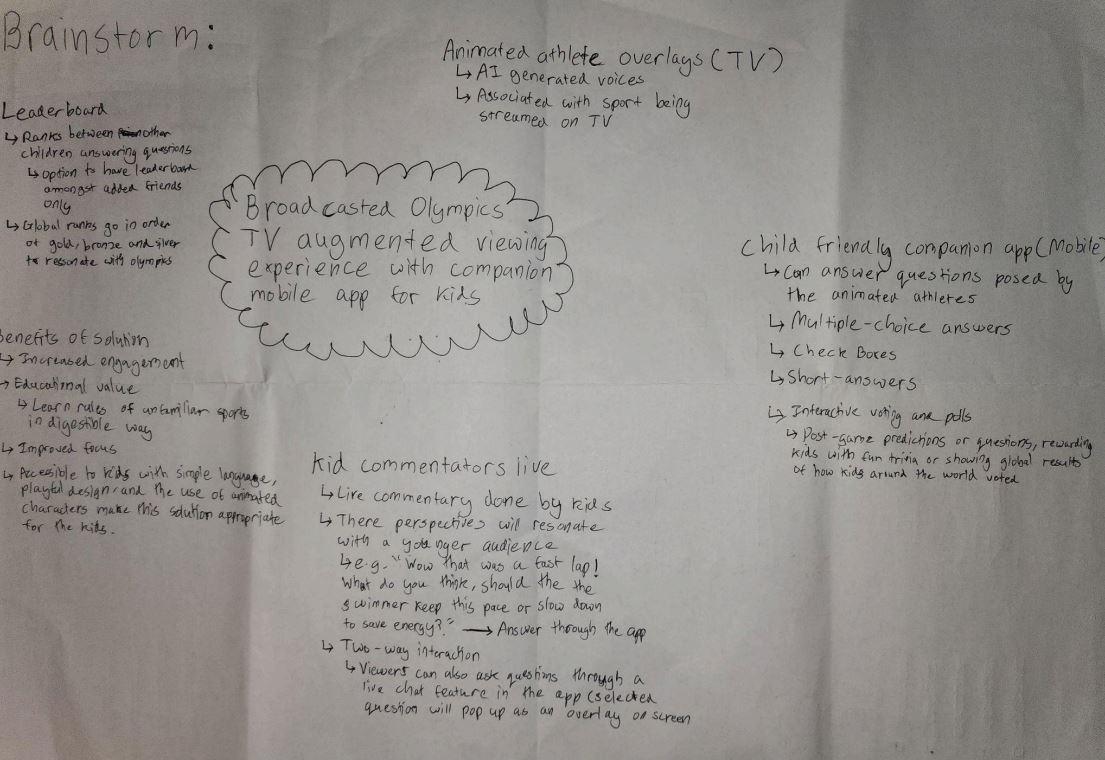 Brainstorm:
Animated athlete overlays (TV)
↳ AI generated voices
↳ Associated with sport being
streamed on TV
Leaderboard
↳ Ranks between other
children answering questions
↳ option to have leaderboard
amongst added friends
only
↳ Global ranks go in order
of gold, bronze and silver
to ressonate with olympics
Broadcasted Olympics
TV augmented viewing
experience with companion
mobile app for kids
Child friendly companion app (Mobile)
↳ Can answer questions posed by
the animated athletes
↳ Multiple-choice answers
↳ Check Boxes
↳ Short-answers
↳ Interactive voting and polls
↳ Post-game predictions or questions, rewarding
kids with fun trivia or showing global results
of how kids around the world voted
Benefits of Solution
↳ Increased engagement
→ Educational value
↳ Learn rules of unfamiliar sports
in digestible way
↳ Improved focus
↳ Accessible to kids with simple language,
playful design and the use of animated
characters make this solution appropriate
for the kids.
Kid commentators live
↳ Live commentary done by kids
↳ There perspectives will resonate
with a younger audience
↳ e.g. "Wow that was a fast lap!
What do you think, should the the
swimmer keep this pace or slow down
to save energy?" → Answer through the app
↳ Two-way interaction
↳ Viewers can also ask questions through a
live chat feature in the app (selected
question will pop up as an overlay on screen